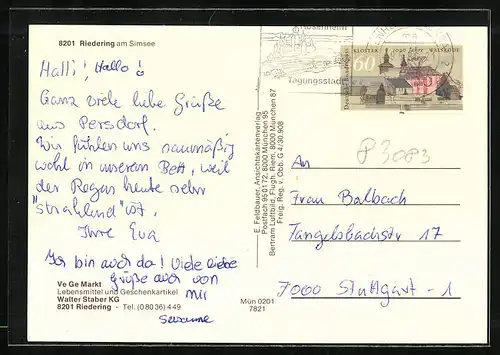 8201 Riedering am Simsee
Halli! Hallo!
Ganz viele liebe Grüße
aus Persdorf.
Wir fühlen uns saumäßig
wohl in unserem Bett, weil
der Regen heute sehr
"strahlend" ist.
Ihre Eva
Ich bin auch da! Viele liebe
Grüße auch von
mir
Susanne
Ve Ge Markt
Lebensmittel und Geschenkartikel
Walter Staber KG
8201 Riedering - Tel. (08036) 449
Mün 0201
7821
E. Feldbauer, Ansichtskartenverlag
Postfach 950172, 8000 München 95
Bertram Luftbild, Flugh. Riem, 8000 München 87
Freig. Reg. v. Obb. G 4/30.908
Rosenheim
Tagungsstadt
KLOSTER 1000 Jahre WALSRODE
60
Deutsche Bundespost
83083
An
Frau Balbach
Tangelsbachstr 17
7000 Stuttgart - 1